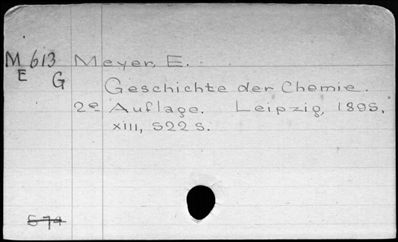 M 613 Meyer, E.
E G
Geschichte der Chemie.
2e Auflage. Leipzig, 1895.
xiii, 522 s.
574